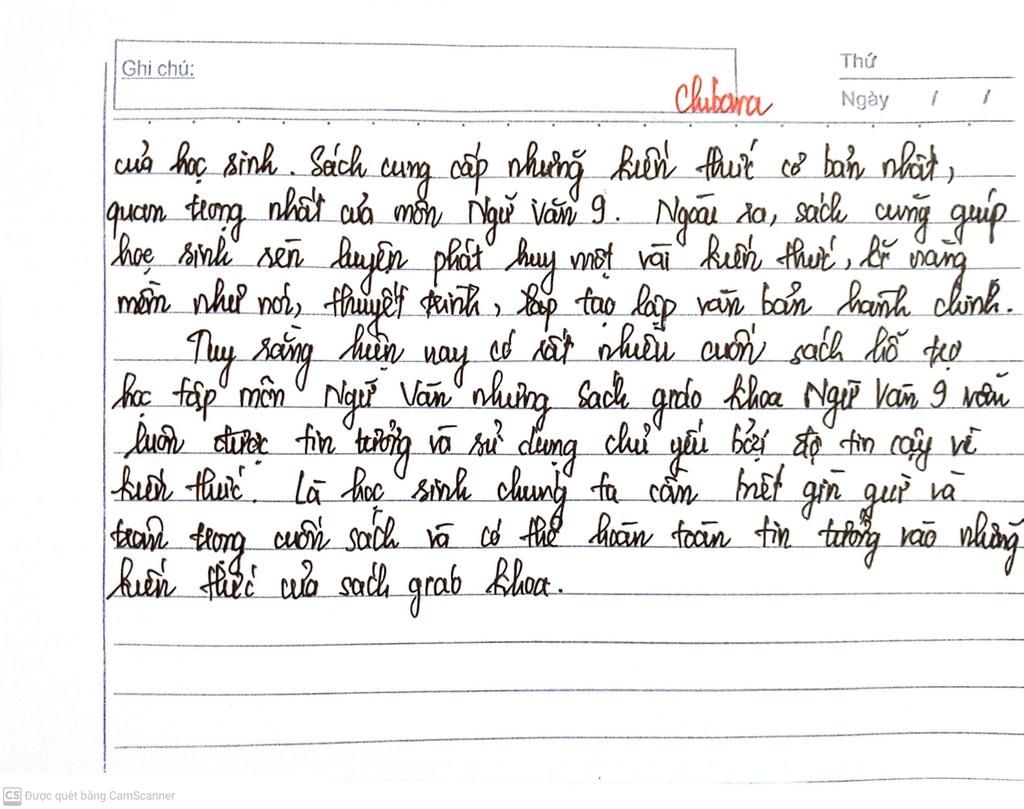 Ghi chú:
Thứ
Chibara
Ngày / /
của học sinh. Sách cung cấp những kiến thức cơ bản nhất,
quan trọng nhất của môn Ngữ Văn 9. Ngoài ra, sách cũng giúp
học sinh rèn luyện phát huy một vài kiến thức, kĩ năng
mềm như nói, thuyết trình, tạo lập văn bản hành chính.
Tuy rằng hiện nay có rất nhiều cuốn sách hỗ trợ
học tập môn Ngữ Văn nhưng sách giáo khoa Ngữ Văn 9 vẫn
luôn được tin tưởng và sử dụng chủ yếu bởi độ tin cậy về
kiến thức. Là học sinh chúng ta cần biết gìn giữ và
trân trọng cuốn sách và có thể hoàn toàn tin tưởng vào những
kiến thức của sách giáo khoa.
CS Được quét bằng CamScanner